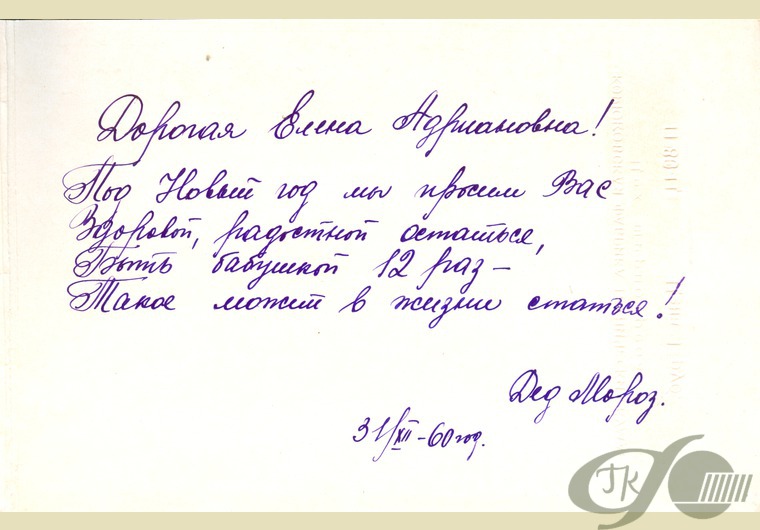 Дорогая Елена Адриановна!
Под Новый год мы просим Вас
Здоровой, радостной остаться,
Быть бабушкой 12 раз –
Такое может в жизни статься!
Дед Мороз.
31/XII – 60 год.
ГК